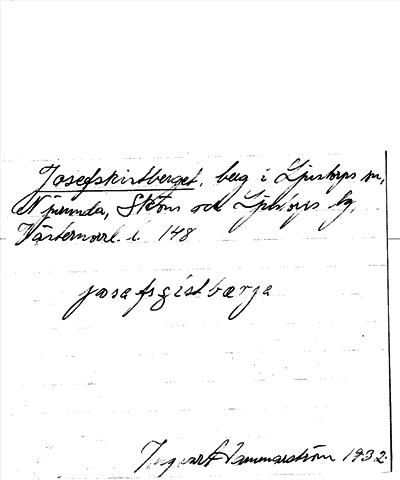 Josefskistberget, berg i Ljustorps sn,
Njurunda, Sköns och Ljustorps tg,
Västernorrl. l. 148
josafsgistbærja
Ingvar Hammarström 1932.